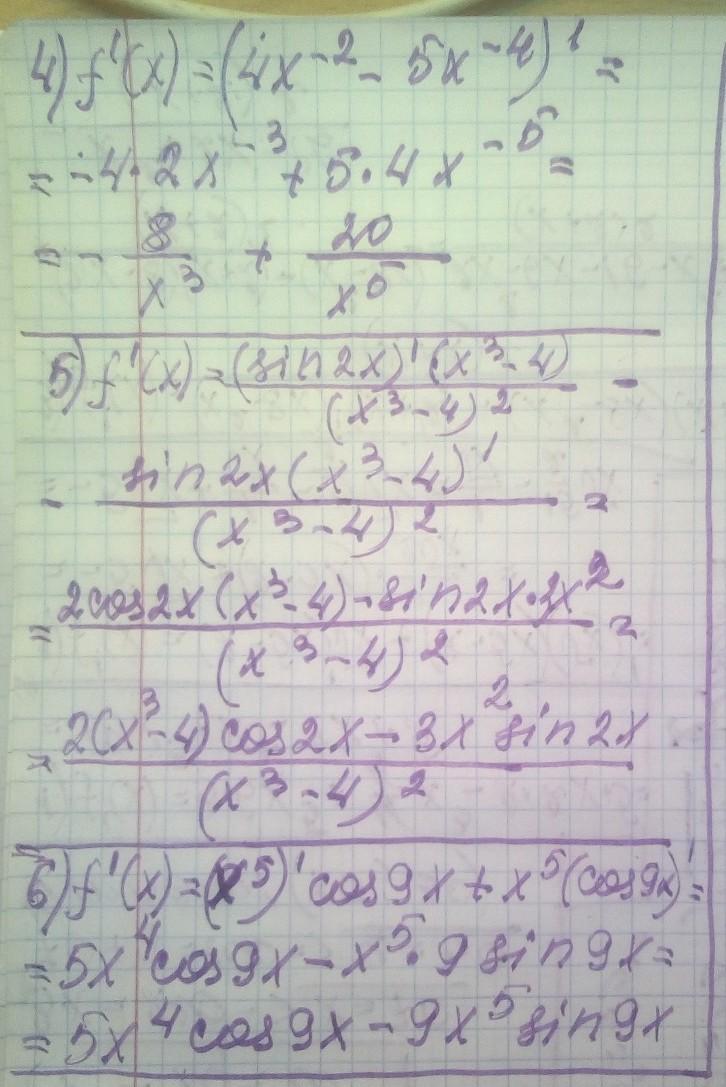 4) f'(x) = (4x⁻² - 5x⁻⁴)' =
= -4·2x⁻³ + 5·4x⁻⁵ =
= - 8/x³ + 20/x⁵
5) f'(x) = (sin2x)'(x³-4)/(x³-4)² -
- sin2x(x³-4)'/(x³-4)² =
= 2cos2x(x³-4) - sin2x·3x²/(x³-4)² =
= 2(x³-4)cos2x - 3x²sin2x/(x³-4)²
6) f'(x) = (x⁵)'cos9x + x⁵(cos9x)' =
= 5x⁴cos9x - x⁵·9sin9x =
= 5x⁴cos9x - 9x⁵sin9x